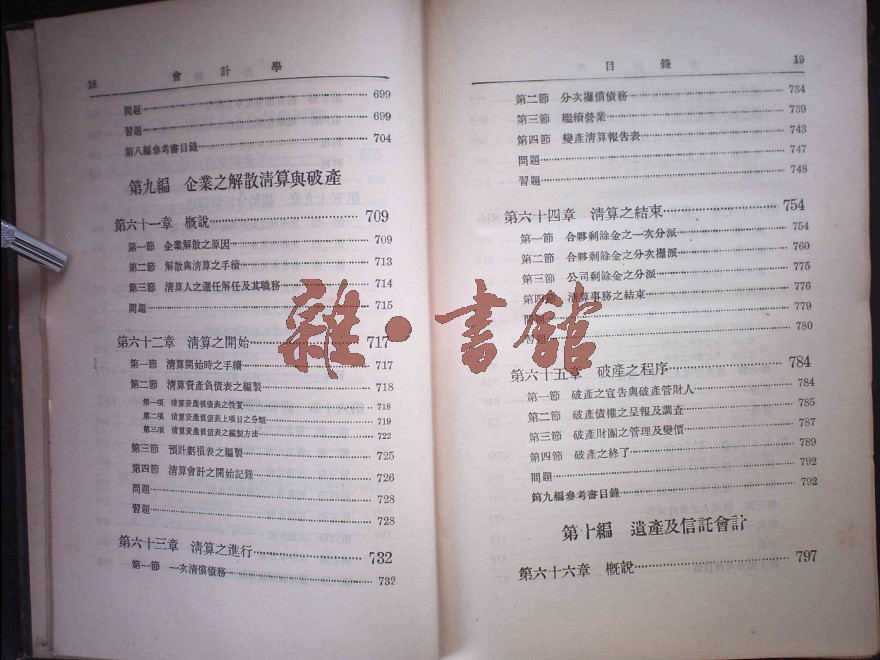 18 會計學
問題 699
習題 699
第八編參考書目錄 704
第九編 企業之解散淸算與破產
第六十一章 槪說 709
第一節 企業解散之原因 709
第二節 解散與淸算之手續 713
第三節 淸算人之選任解任及其職務 714
問題 715
第六十二章 淸算之開始 717
第一節 淸算開始時之手續 717
第二節 淸算資產負債表之編製 718
第一項 淸算資產負債表之性質 718
第二項 淸算資產負債表上項目之分類 719
第三項 淸算資產負債表之編製方法 722
第三節 預計虧損表之編製 725
第四節 淸算會計之開始記錄 726
問題 728
習題 728
第六十三章 淸算之進行 732
第一節 一次淸償債務 732
目錄 19
第二節 分次攤償債務 734
第三節 繼續營業 739
第四節 變產淸算報告表 743
問題 747
習題 748
第六十四章 淸算之結束 754
第一節 合夥剩餘金之一次分派 754
第二節 合夥剩餘金之分次攤派 760
第三節 公司剩餘金之分派 775
第四節 淸算事務之結束 776
問題 779
習題 780
第六十五章 破產之程序 784
第一節 破產之宣告與破產管財人 784
第二節 破產債權之呈報及調查 785
第三節 破產財團之管理及變價 787
第四節 破產之終了 789
問題 792
第九編參考書目錄 792
第十編 遺產及信託會計
第六十六章 槪說 797
雜·書館